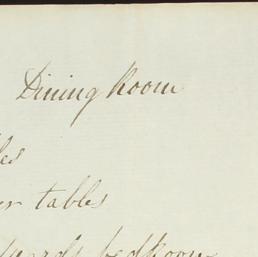 Dining Room
les
er tables
bedroom